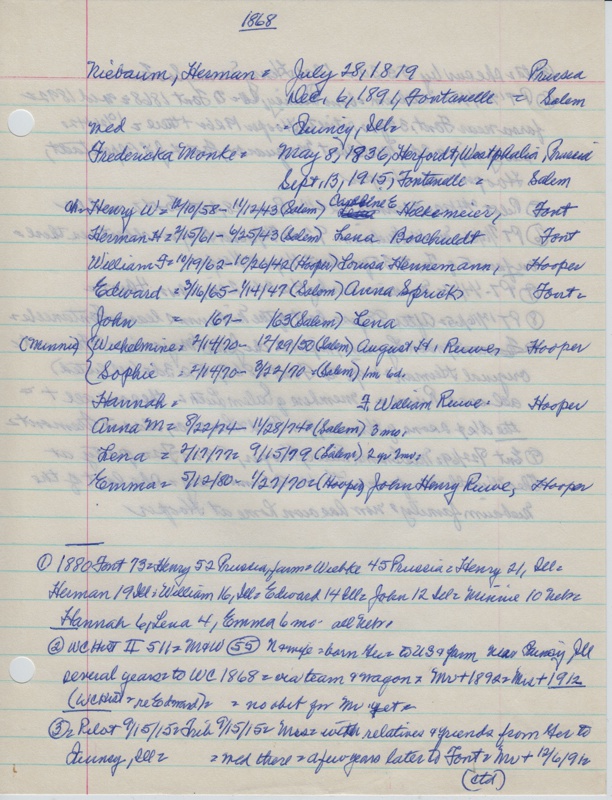 1868
Niebaum, Herman = July 28, 1819 Prussia
Dec, 6, 1891, Fontanelle = Salem
med = Quincy, Ill =
Fredericka Monke = May 8, 1836, Herfordt, Westphalia, Prussia
Sept, 13, 1915, Fontanelle = Salem
Ch = Henry W = 10/58 - 11/12/43 (Salem) Caroline E Hockemeier, Font
Herman H = 2/15/61 - 6/25/43 (Salem) Lena Boschuldt Font
William F = 10/19/62 - 10/26/42 (Hooper) Louisa Hennemann, Hooper
Edward = 3/16/65 - 1/14/47 (Salem) Anna Sprick Font =
John = 167 - 163 (Salem) Lena
(Minnie) Wilhelmine = 2/14/70 - 12/29/50 (Salem) August H, Ruwe = Hooper
Sophie = 2/14/70 - 3/22/70 = (Salem) 1m 6d.
Hannah = F. William Ruwe = Hooper
Anna M = 8/22/74 - 11/28/74 = (Salem) 3 mo;
Lena = 2/17/77 = 9/15/79 (Salem) 2 yr 7mo =
Emma = 5/12/80 - 1/27/70 = (Hooper) John Henry Ruwe, Hooper
① 1880 Font 73 = Henry 52 Prussia, farm = Wiebke 45 Prussia = Henry 21, Ill =
Herman 19 Ill = William 16, Ill = Edward 14 Ill = John 12 Ill = Minnie 10 Nebr =
Hannah 6, Lena 4, Emma 6 mo - all Nebr
② WC Hist II 511 = M+W (55) N + wife = born Ger = to US = farm near Quincy Ill
several years = to WC 1868 = via team + wagon = Mr + 1892 = Mrs + 1912
(WC Hist = re Edward) = = no obit for Mr yet =
③ = Pilot 9/15/15 = Trib 9/15/15 = Mrs = with relatives + friends from Ger to
Quincy, Ill = = med there = a few years later to Font = Mr + 12/6/91 =
(ctd)